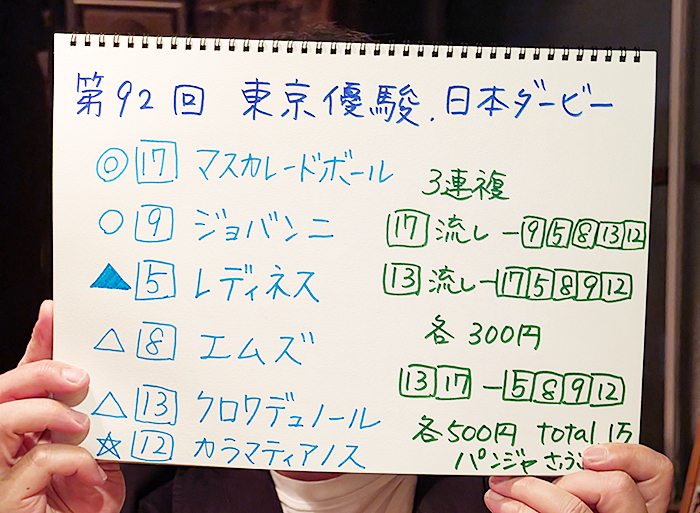 第92回 東京優駿.日本ダービー
◎ 17 マスカレードボール
○ 9 ジョバンニ
▲ 5 レディネス
△ 8 エムズ
△ 13 クロワデュノール
☆ 12 カラマティアノス
3連複
17 流し-9 5 8 13 12
13 流し-17 5 8 9 12
各 300円
13 17 -5 8 9 12
各500円 total 1万
パンジャ